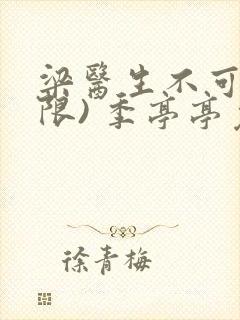 梁醫生不可
限) 季亭亭
徐青梅